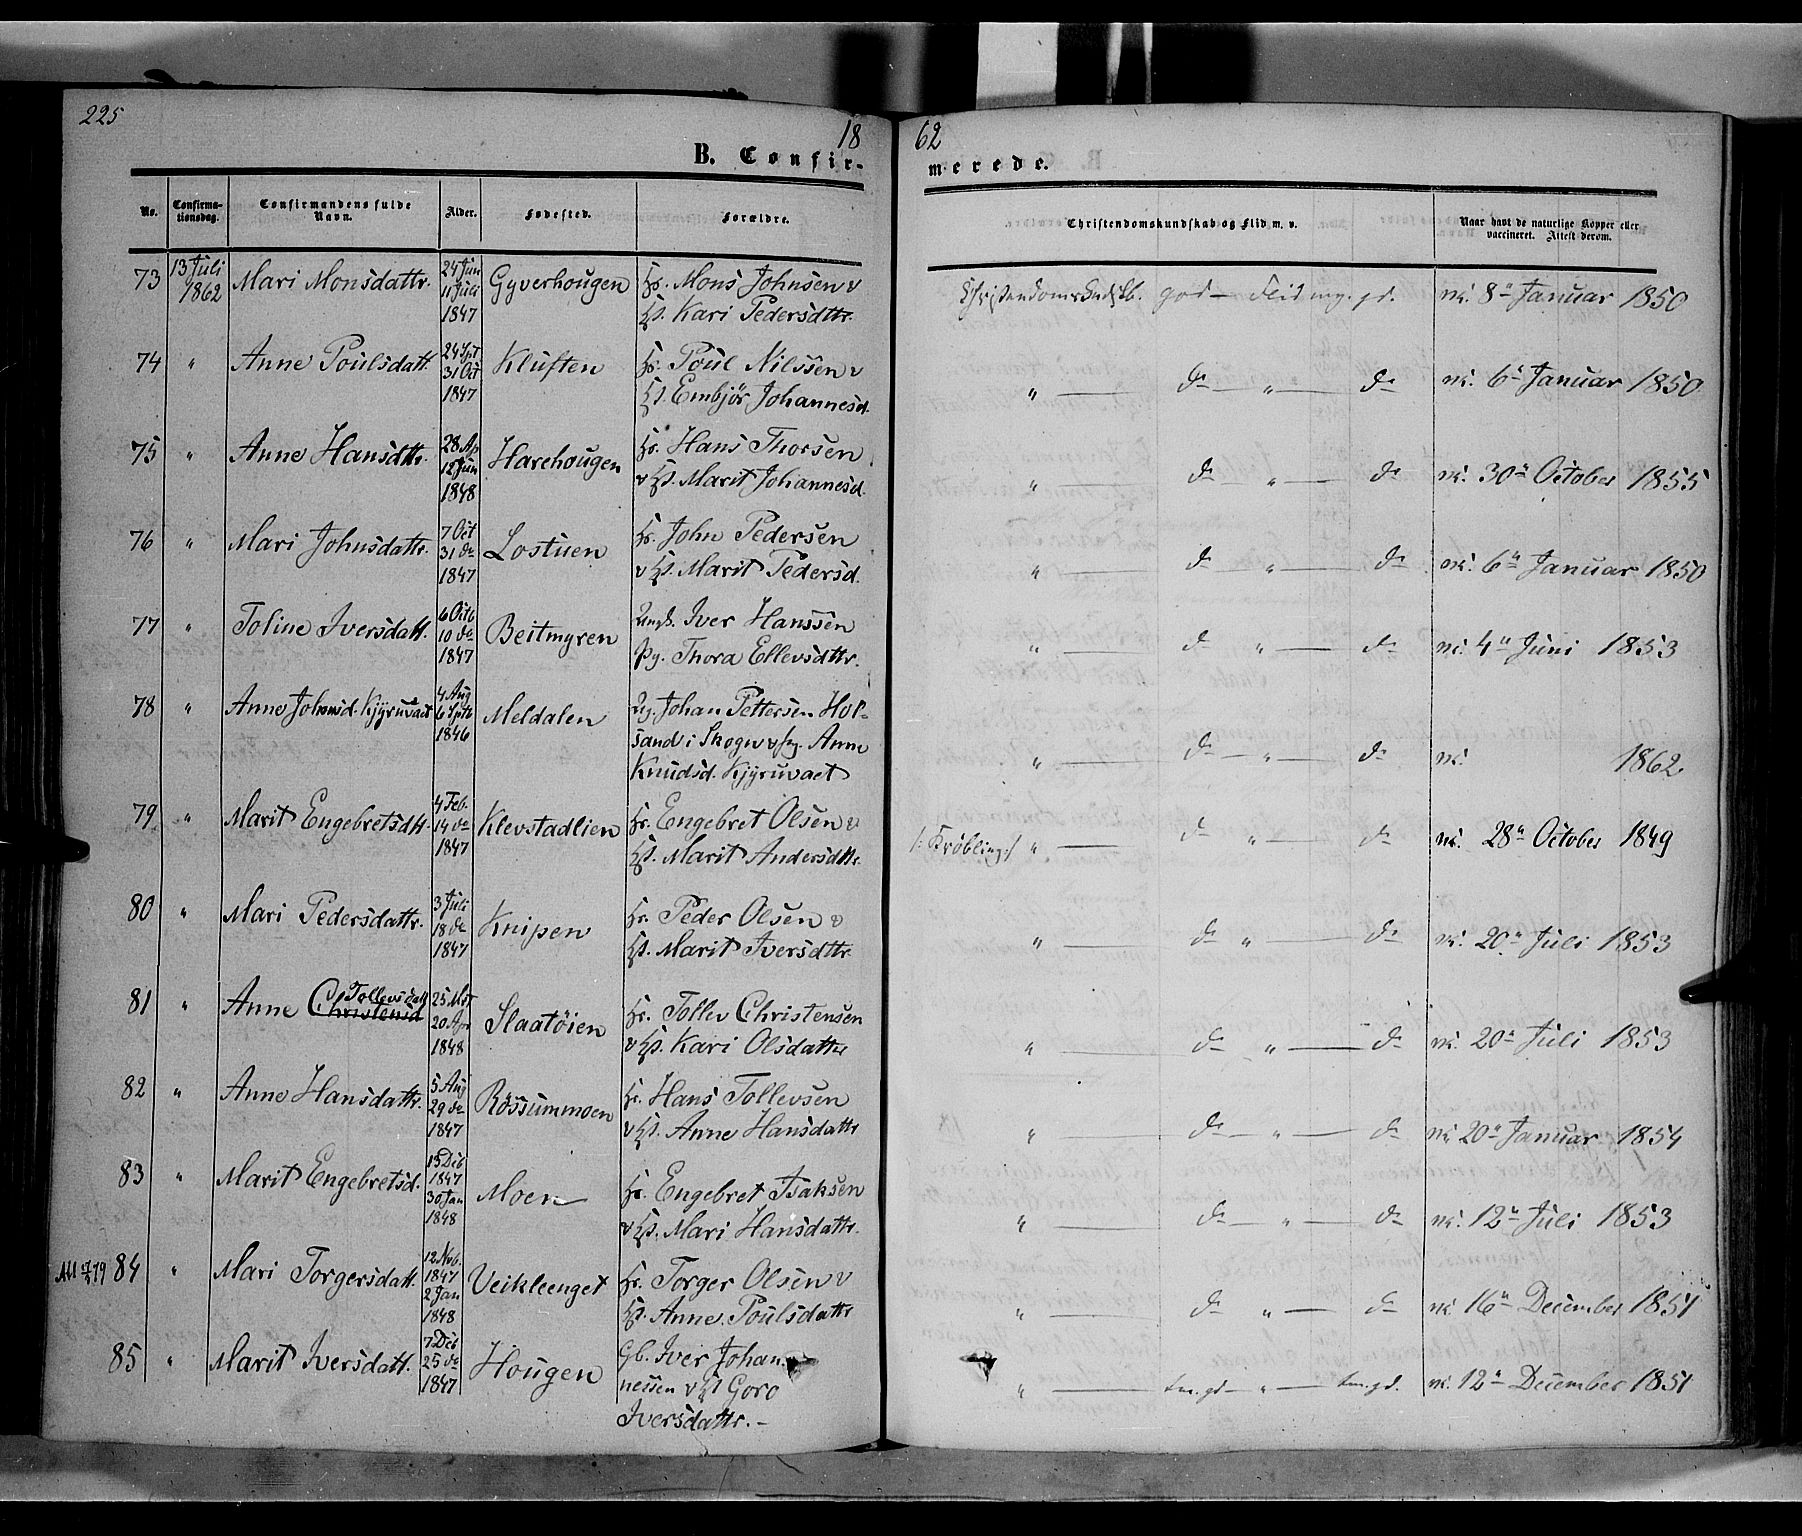 225
18
62
B. Confir-
merede.
No.
Confirma-
tionsdag.
Confirmandens fulde
Navn.
Alder.
Fødested.
Forældre.
Christendomskundskab og Flid m. v.
Naar havt de naturlige Kopper eller
vaccineret. Attest derom.
73 13 Juli 1862 Mari Monsdattr. 24 Jun 11 Juli 1847 Gyverhougen Hr. Mons Johnsen v Hst. Kari Pedersdttr. Christendomskndskb. god — Flid mg. gd. vk. 8de Januar 1850
74 " Anne Poulsdatt. 24 Spt 31 Oct 1847 Kluften Hr. Poul Nilssen v Hst. Embjör Johannesd. " — do — " — do vk. 6te Januar 1850
75 " Anne Hansdttr. 28 Ap 12 Jun 1848 Harehougen Hr. Hans Thorsen v Hst. Marit Johannesd. " — do — " — do vk. 30te October 1855
76 " Mari Johnsdattr. 7 Oct 31 do 1847 Lostuen Hr. John Pedersen v Hst. Marit Pedersd. " — do — " — do vk. 6te Januar 1850
77 " Toline Iversdatt. 6 Octb 10 do 1847 Beitmyren Ungk. Iver Hanssen Pg. Thora Ellevsdttr. " — do " — do vk. 4de Juni 1853
78 " Anne Johnsd. Kjyruvaet 4 Aug 6 Sptb 1846 Meldalen Ug. Johan Pettersen Hol-
sand i Skogn v Pg. Anne
Knudsd. Kjyruvaet " — do — " — do vk. 1862
79 " Marit Engebretsdtt. 4 Feb. 14 do 1847 Klevstadlien Hr. Engebret Olsen v Hst. Marit Andersdttr. /: Kröbling :/ " — do " — do vk. 28de October 1849
80 " Mari Pedersdattr. 3 Juli 18 do 1847 Knipen Hr. Peder Olsen v Hst. Marit Iversdttr. " — do " — do vk. 20de Juli 1853
81 " Anne Christensd Tollevsdatt 25 Mrt 20 Apr 1848 Slaatöien Hr. Tollev Christensen v Hst. Kari Olsdatter " — do " — do vk. 20de Juli 1853
82 " Anne Hansdattr. 5 Aug 29 do 1847 Rössummoen Hr. Hans Tollevsen v Hst. Anne Hansdattr " — do — " — do vk. 20de Januar 1854
83 " Marit Engebretsd. 13 Deb 1847 30 Jan 1848 Moen Hr. Engebret Isaksen v Hst. Mari Hansdattr. " — do — " — do vk. 12te Juli 1853
84 " Mari Torgersdatt. 12 Nvb. 1847 2 Jan 1848 Veikleenget Hr. Torger Olsen v Hst. Anne Poulsdattr " — do " — do vk. 16de December 1851
85 " Marit Iversdatt. 7 Deb 25 do 1847 Hougen Gb. Iver Johan-
nessen v Hst Goro
Iversdattr. — " — tm. gd — " — tm. gd. vk. 12te December 1851